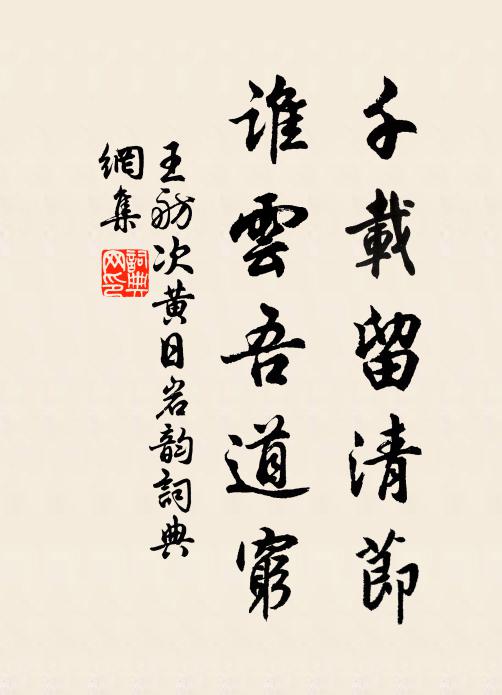 千載留清節
誰雲吾道窮
王舫次黃日岩韵詞典
網集
詞典網印